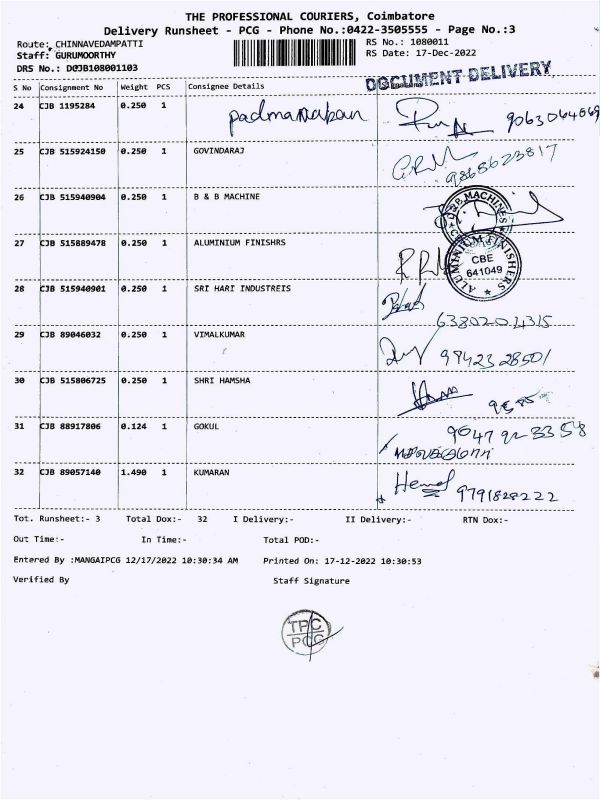 THE PROFESSIONAL COURIERS, Coimbatore
Delivery Runsheet - PCG - Phone No.:0422-3505555 - Page No.:3
Route: CHINNAVEDAMPATTI
RS No.: 1080011
Staff: GURUMOORTHY
RS Date: 17-Dec-2022
DRS No.: DCJB108001103
DOCUMENT DELIVERY
S No Consignment No Weight PCS Consignee Details
24 CJB 1195284 0.250 1 padmanaban 9063064069
25 CJB 515924150 0.250 1 GOVINDARAJ 9868623817
26 CJB 515940904 0.250 1 B & B MACHINE
B&B MACHINES
27 CJB 515889478 0.250 1 ALUMINIUM FINISHRS
ALUMINIUM FINISHERS
CBE
641049
28 CJB 515940901 0.250 1 SRI HARI INDUSTREIS
6380204315
29 CJB 89046032 0.250 1 VIMALKUMAR 9942328501
30 CJB 515806725 0.250 1 SHRI HAMSHA
31 CJB 88917806 0.124 1 GOKUL 9047923358
32 CJB 89057140 1.490 1 KUMARAN Hemal 9791828222
Tot. Runsheet:- 3 Total Dox:- 32 I Delivery:- II Delivery:- RTN Dox:-
Out Time:- In Time:- Total POD:-
Entered By :MANGAIPCG 12/17/2022 10:30:34 AM Printed On: 17-12-2022 10:30:53
Verified By Staff Signature
TPC
PCG